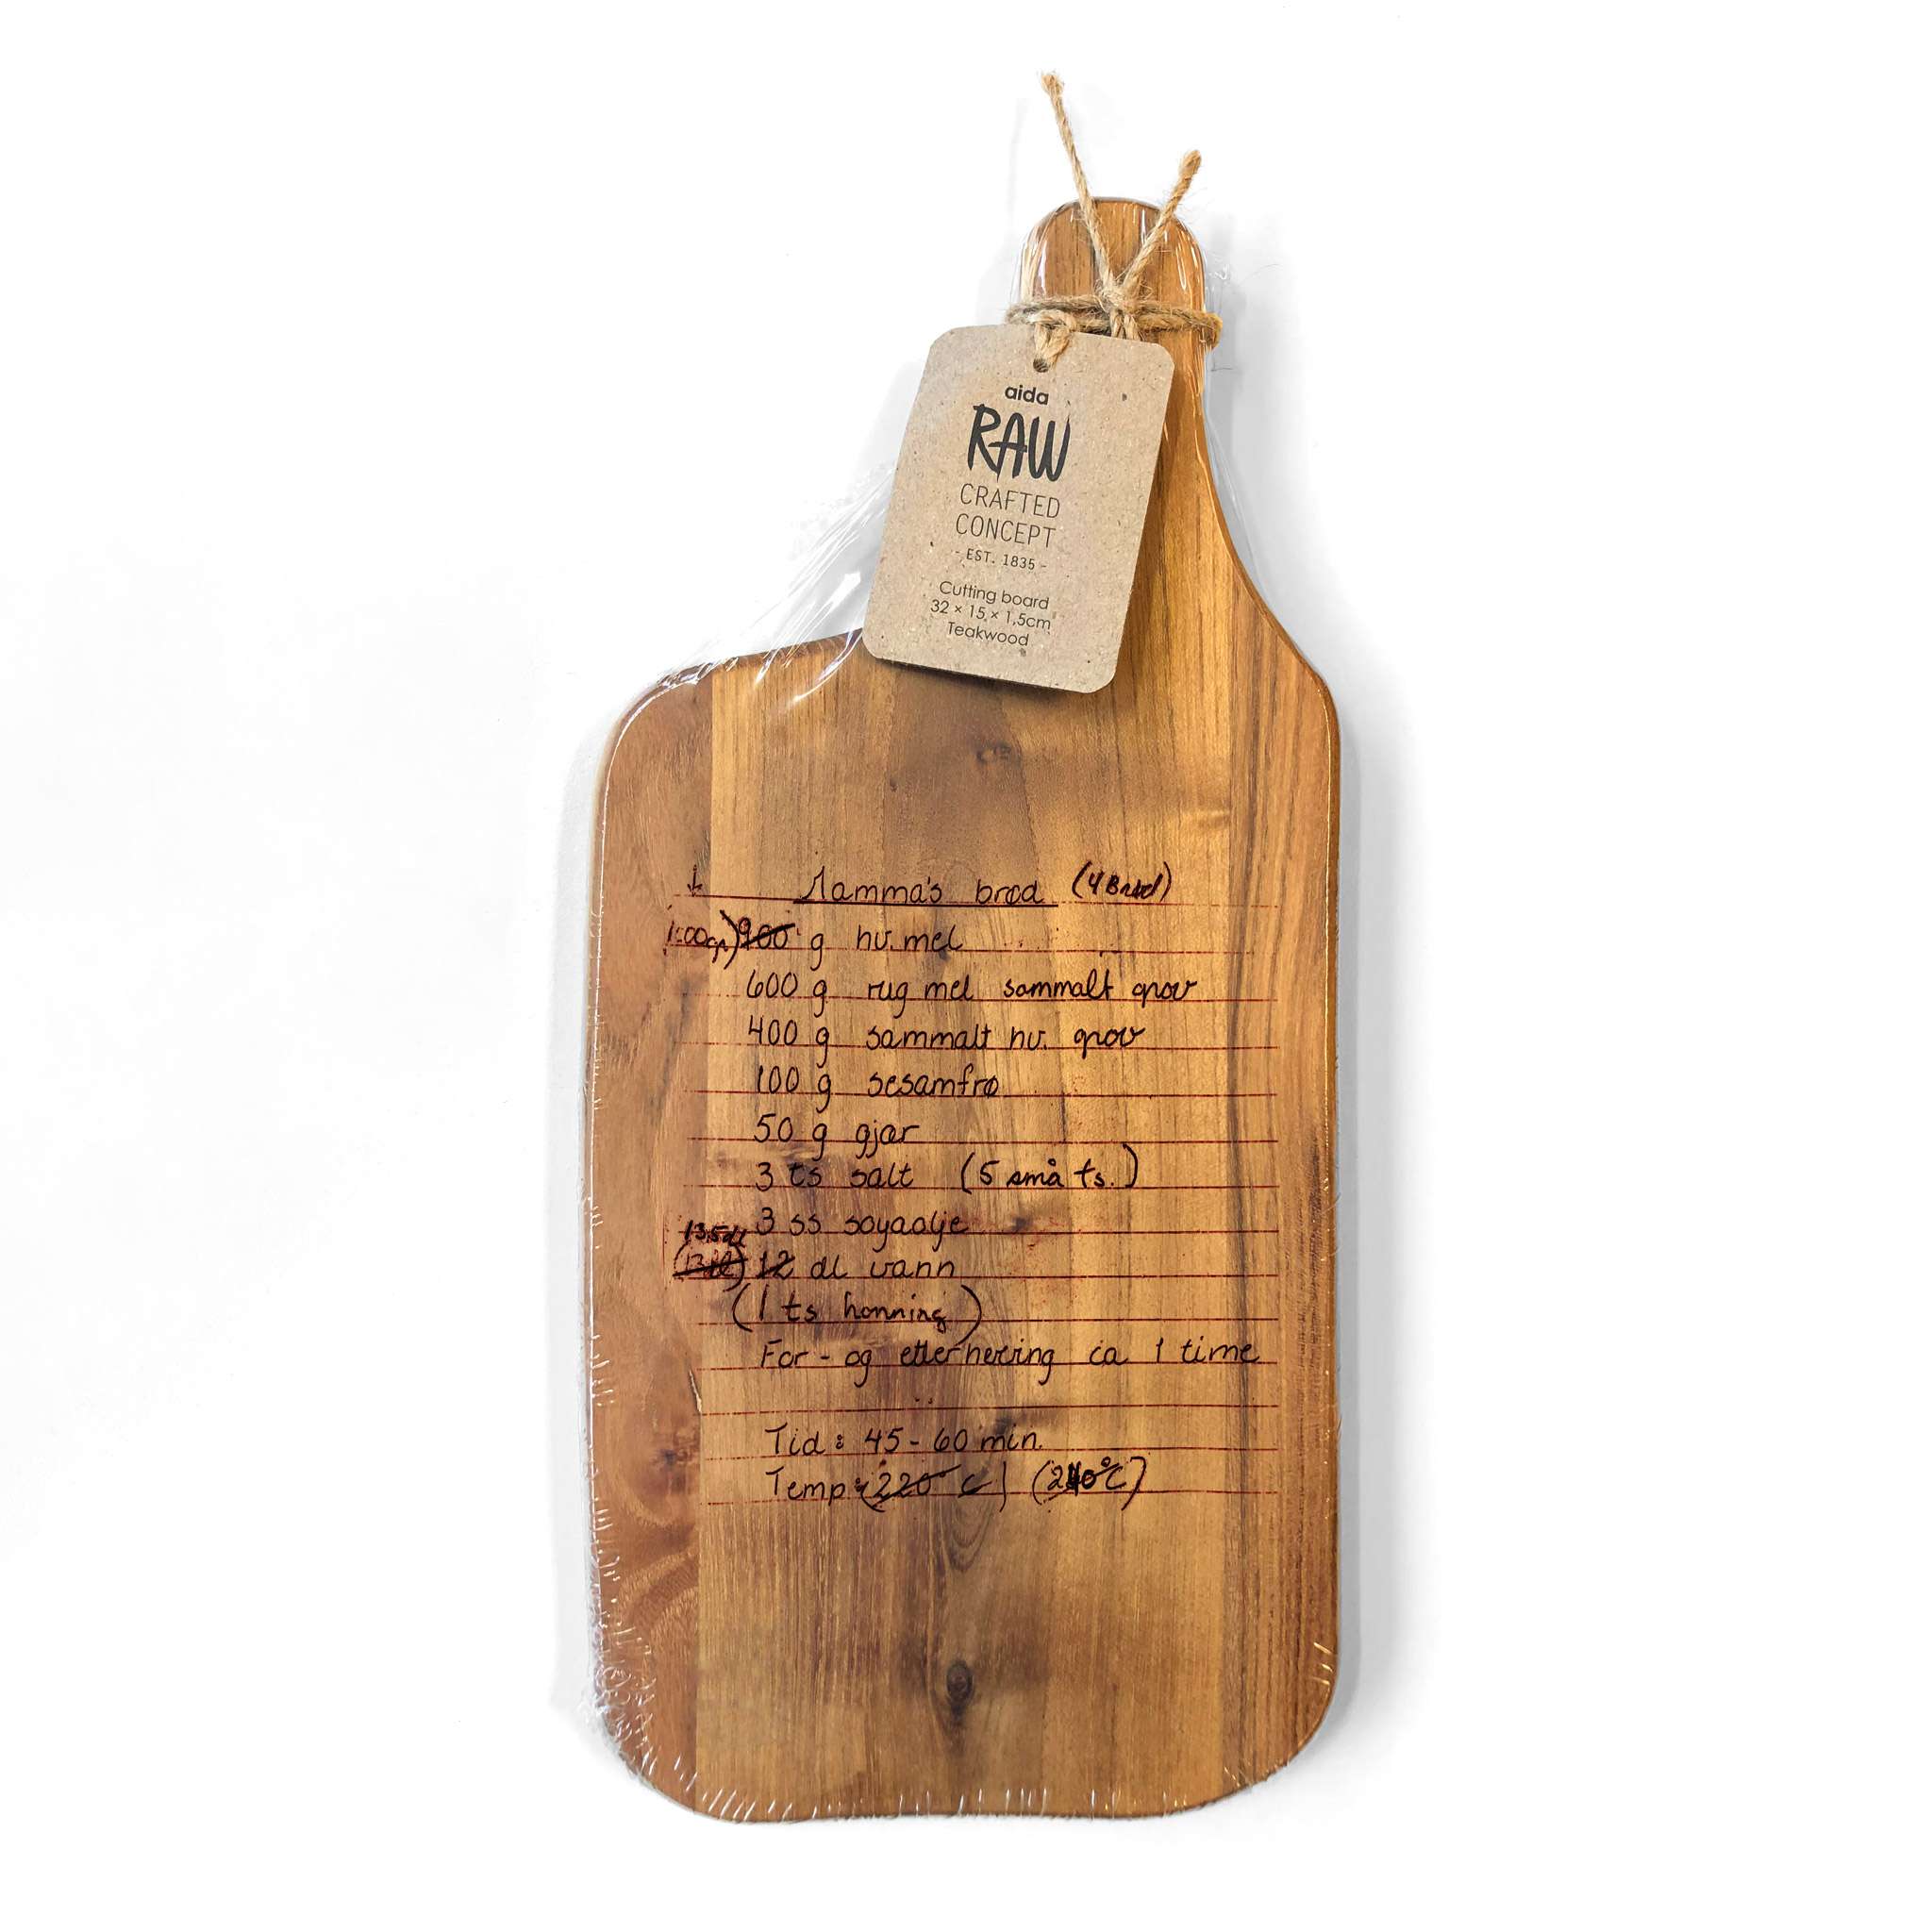 aida
RAW
CRAFTED
CONCEPT
- EST. 1835 -
Cutting board
32 × 15 × 1,5cm
Teakwood
Mamma's brød (4 Brød)
900 g hv. mel
600 g rug mel sammalt grov
400 g sammalt hv. grov
100 g sesamfrø
50 g gjær
3 ts salt (5 små ts.)
3 ss soyaolje
13,5dl
(13dl) 12 dl vann
(1 ts honning)
For - og etterheving ca 1 time
Tid: 45 - 60 min.
Temp: (220° C)